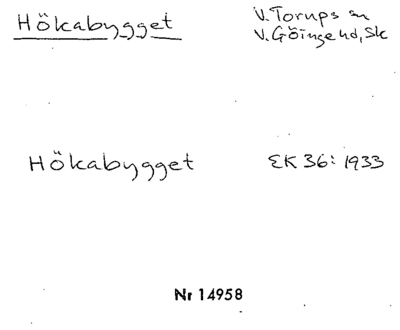 Hökabygget
V. Torups sn
V. Göinge hd, Sk
Hökabygget
EK 36: 1933
Nr 14958